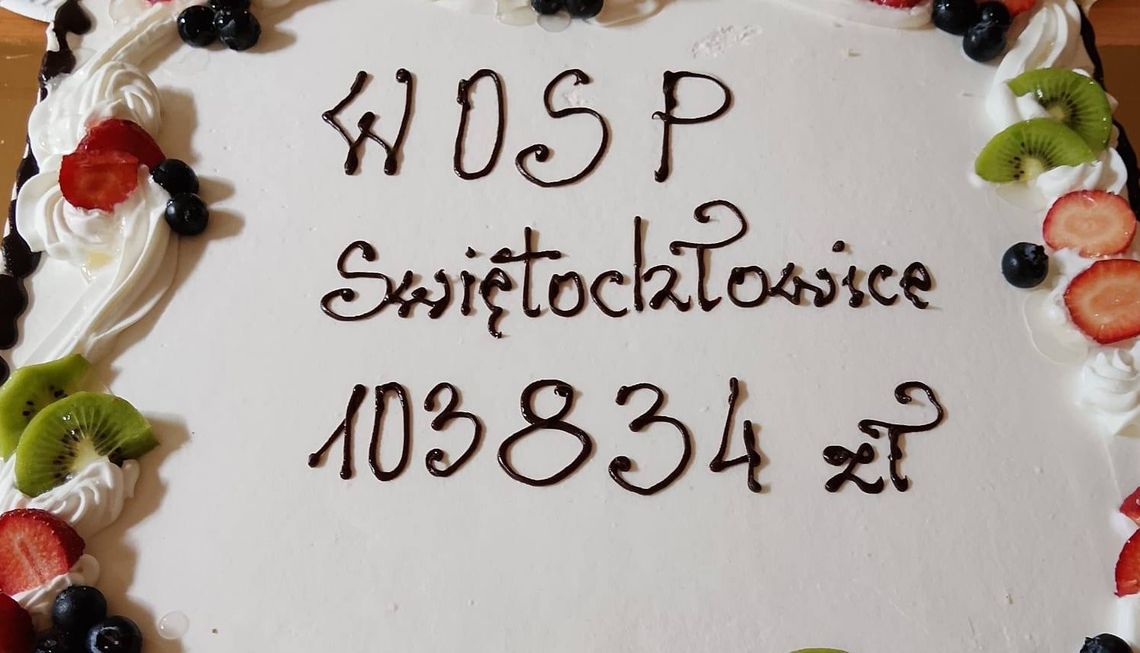 WOSP
Swiętochłowice
103834 zł